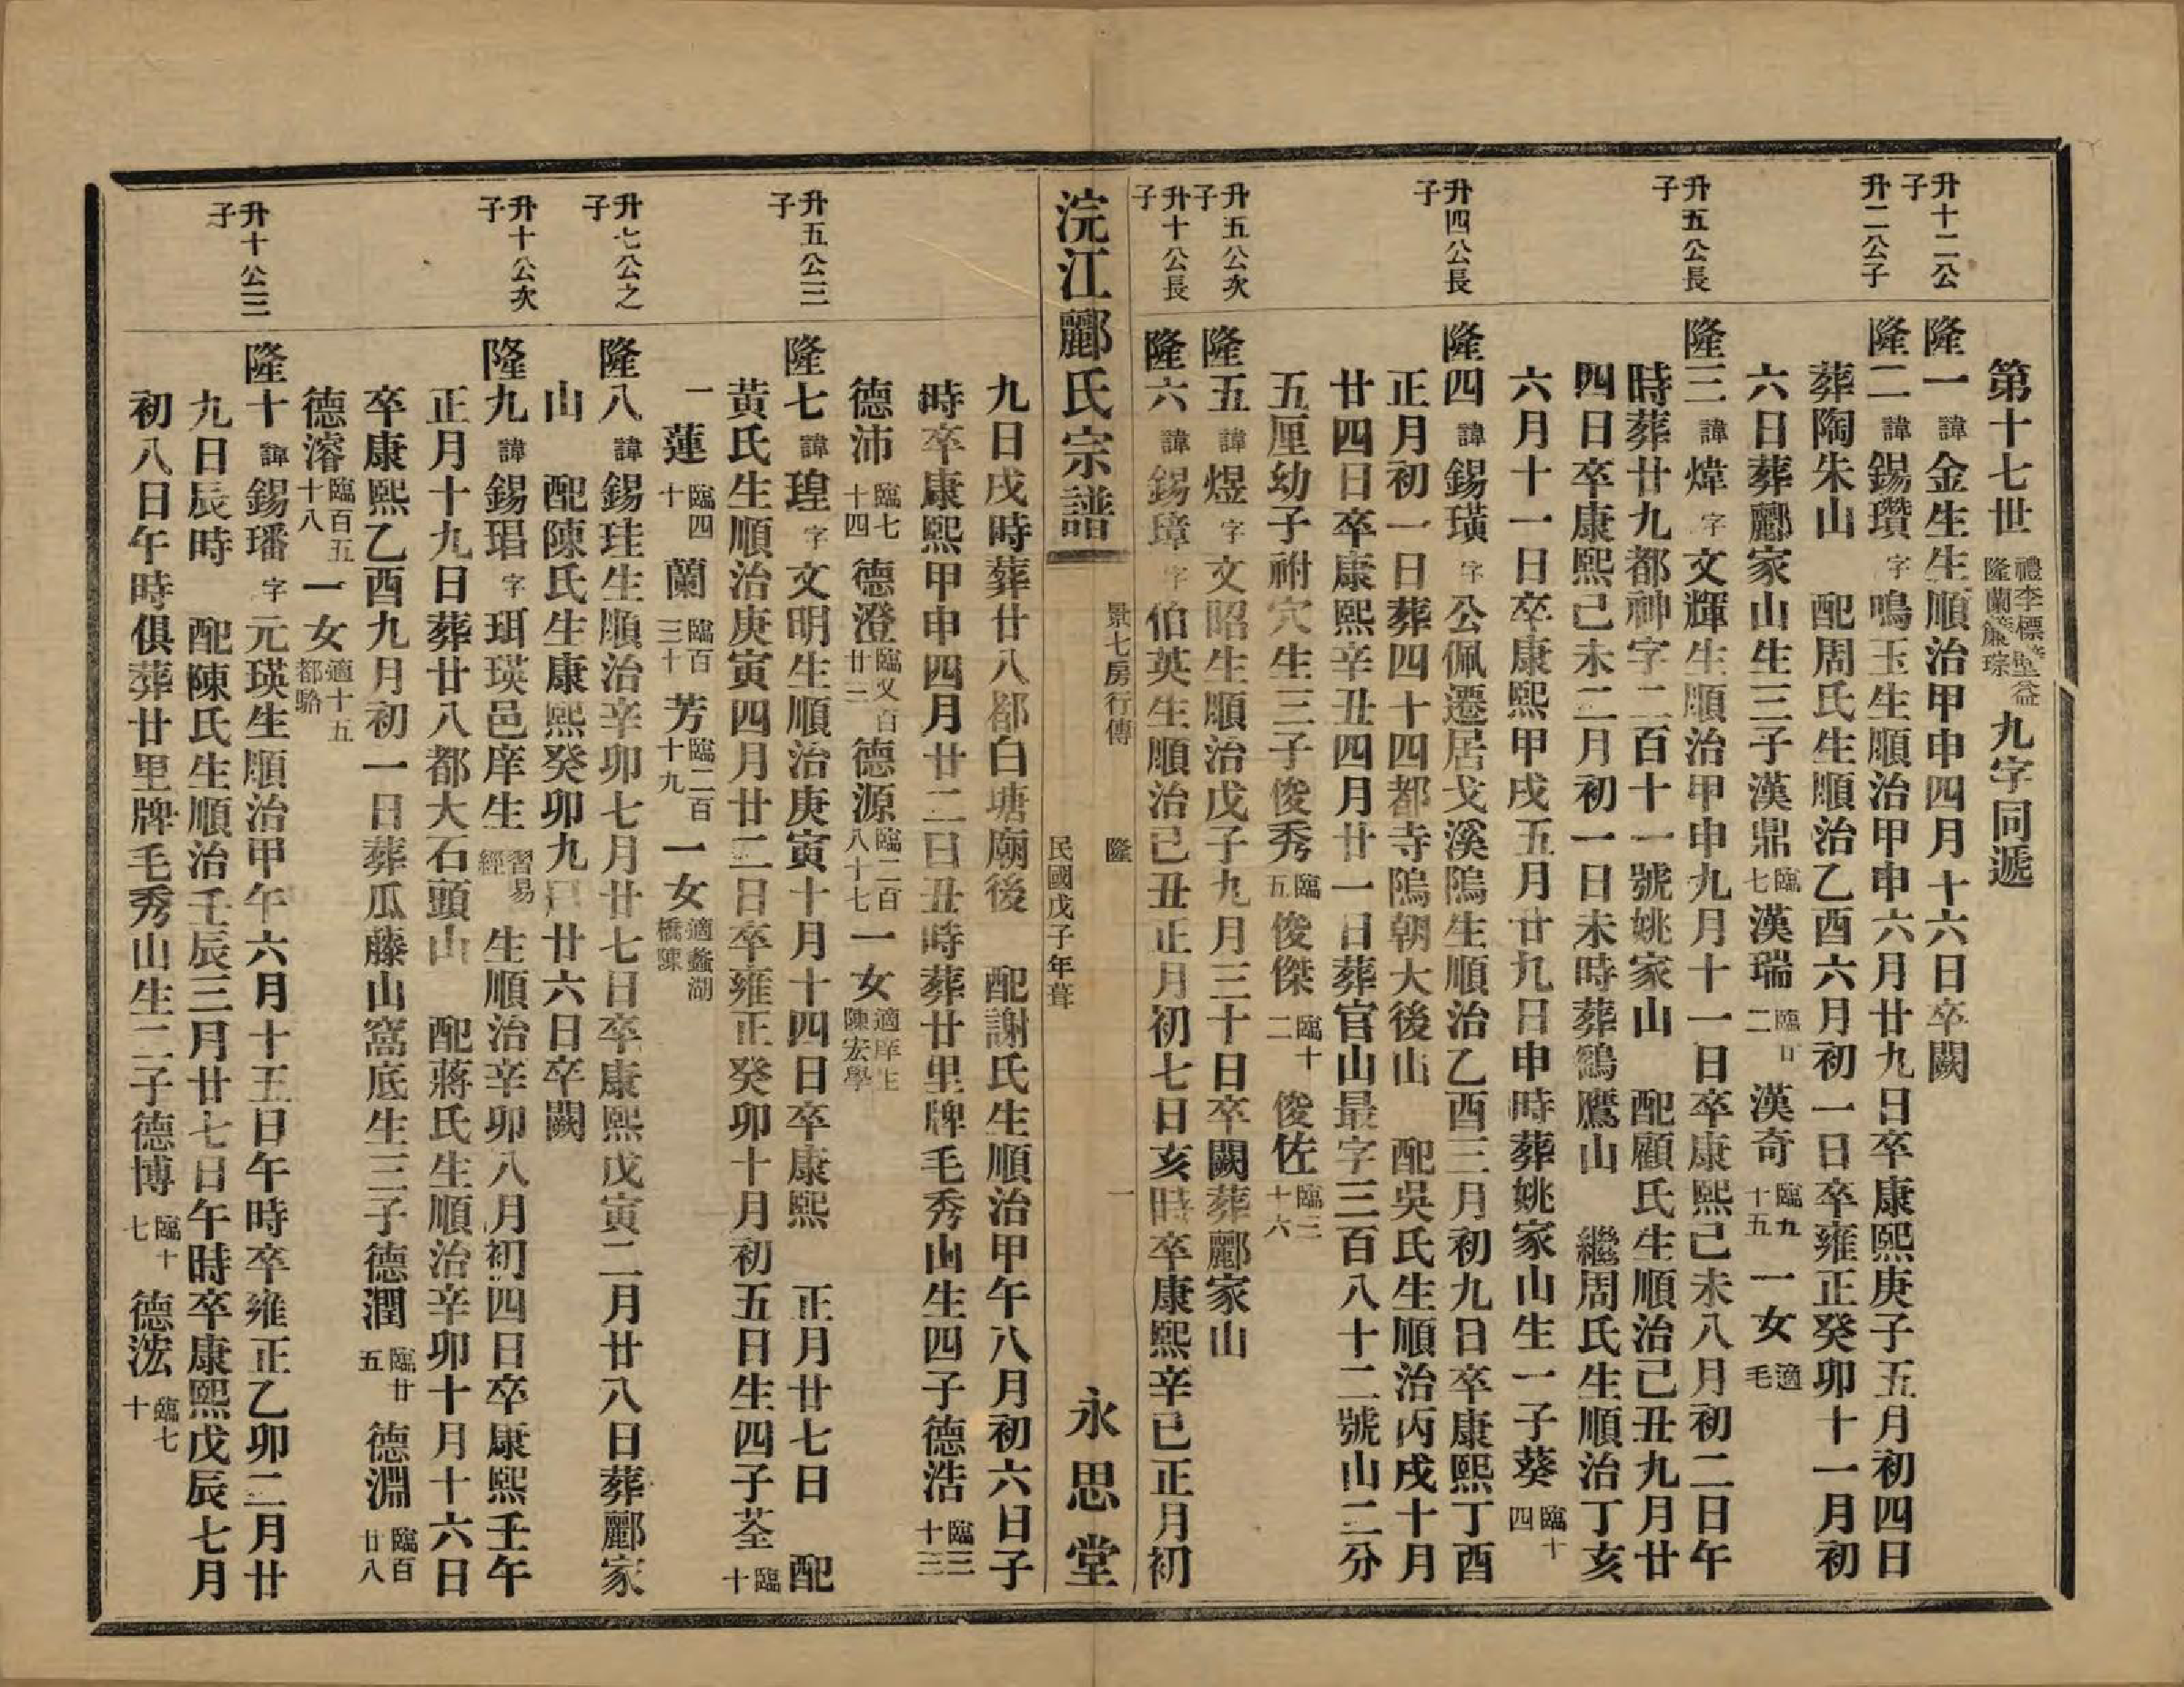 第十七世 禮李標璧益隆蘭簾琮 九字同遞
升十二公子
隆一 諱 金生生順治甲申四月十六日卒闕
升二公子
隆二 諱 錫瓚 字 鳴玉生順治甲申六月廿九日卒康熙庚子五月初四日
葬陶朱山 配周氏生順治乙酉六月初一日卒雍正癸卯十一月初
六日葬酈家山生三子漢鼎 臨七 漢瑞 臨廿二 漢奇 臨九十五 一女 適毛
升五公長子
隆三 諱 煒 字 文輝生順治甲申九月十一日卒康熙己未八月初二日午
時葬廿九都神字二百十一號姚家山 配顧氏生順治己丑九月廿
四日卒康熙己未二月初一日未時葬鶴鷹山 繼周氏生順治丁亥
六月十一日卒康熙甲戌五月廿九日申時葬姚家山生一子葵 臨十四
升四公長子
隆四 諱 錫璜 字 公佩遷居戈溪隖生順治乙酉三月初九日卒康熙丁酉
正月初一日葬四十四都寺隖朝大後山 配吳氏生順治丙戌十月
廿四日卒康熙辛丑四月廿一日葬官山最字三百八十二號山二分
五厘幼子祔穴生三子俊秀 臨五 俊傑 臨十二 俊佐 臨三十六
升五公次子
隆五 諱 煜 字 文昭生順治戊子九月三十日卒闕葬酈家山
升十公長子
隆六 諱 錫璋 字 伯英生順治己丑正月初七日亥時卒康熙辛巳正月初
浣江酈氏宗譜
景七房行傳
隆
一
民國戊子年葺
永思堂
九日戌時葬廿八都白塘廟後 配謝氏生順治甲午八月初六日子
時卒康熙甲申四月廿二日丑時葬廿里牌毛秀山生四子德浩 臨三十三
德沛 臨七十四 德澄 臨又百廿三 德源 臨二百八十七 一女 適庠生陳宏學
升五公三子
隆七 諱 瑝 字 文明生順治庚寅十月十四日卒康熙 正月廿七日 配
黃氏生順治庚寅四月廿二日卒雍正癸卯十月初五日生四子荃 臨十
一 蓮 臨四十 蘭 臨百三十 芳 臨二百十九 一女 適蠡湖橋陳
升七公之子
隆八 諱 錫珪生順治辛卯七月廿七日卒康熙戊寅二月廿八日葬酈家
山 配陳氏生康熙癸卯九月廿六日卒闕
升十公次子
隆九 諱 錫琩 字 珥瑛邑庠生 習易經 生順治辛卯八月初四日卒康熙壬午
正月十九日葬廿八都大石頭山 配蔣氏生順治辛卯十月十六日
卒康熙乙酉九月初一日葬瓜藤山窩底生三子德潤 臨廿五 德淵 臨百廿八
德濬 臨百五十八 一女 適十五都駱
升十公三子
隆十 諱 錫璠 字 元瑛生順治甲午六月十五日午時卒雍正乙卯二月廿
九日辰時 配陳氏生順治壬辰三月廿七日午時卒康熙戊辰七月
初八日午時俱葬廿里牌毛秀山生二子德博 臨十七 德浤 臨七十